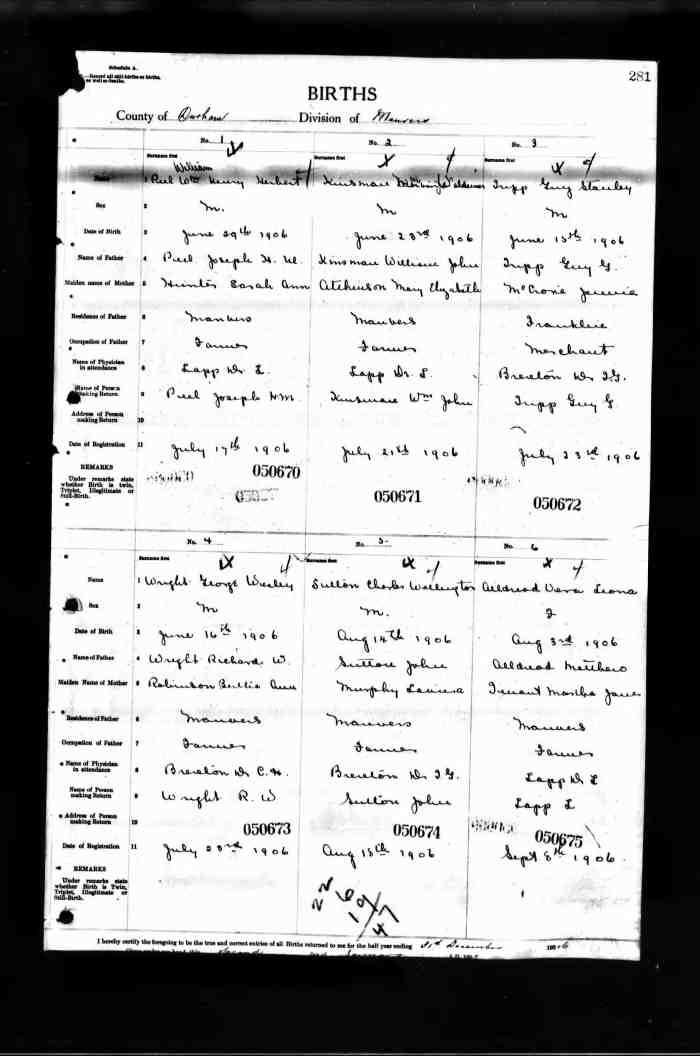 Schedule A.
Record all still births as births,
as well as deaths.
281
BIRTHS
County of Durham Division of Manvers
No. 1 No. 2 No. 3
Surname first Surname first Surname first
William
1 Wm Henry Herbert Kinsman Tripp Guy Stanley
Sex 2 M. M M
Date of Birth 3 June 29th 1906 June 23rd 1906 June 15th 1906
Name of Father 4 Joseph H. M. Kinsman William John Tripp Guy G.
Maiden name of Mother 5 Hunter Sarah Ann Atchinson May Elizabeth
Residence of Father 6 Manvers Manvers Franklin
Occupation of Father 7 Farmer Farmer Merchant
Name of Physician
in attendance 8 Lapp Dr. L. Lapp Dr. L. Brereton Dr T.G.
Name of Person
making Return 9 Joseph H.M. Kinsman Wm John Tripp Guy G
Address of Person
making Return 10
Date of Registration 11 July 17th 1906 July 21st 1906 July 23rd 1906
REMARKS
Under remarks state
whether Birth is twin,
Triplet, Illegitimate or
Still-Birth.
050670 050671 050672
No. 4 No. 5 No. 6
Surname first Surname first Surname first
Name 1 Wright George Wesley Sutton Charles Wellington Aldread Vera Leona
Sex 2 M M. F
Date of Birth 3 June 16th 1906 Aug 14th 1906 Aug 3rd 1906
Name of Father 4 Wright Richard W. Sutton John Aldread Matthew
Maiden Name of Mother 5 Robinson Ann Murphy Martha Jane
Residence of Father 6 Manvers Manvers Manvers
Occupation of Father 7 Farmer Farmer Farmer
Name of Physician
in attendance 8 Brereton Dr C.H. Brereton Dr T.G. Lapp Dr L
Name of Person
making Return 9 Wright R. W Sutton John Lapp L
Address of Person
making Return 10
050673 050674 050675
Date of Registration 11 July 23rd 1906 Aug 15th 1906 Sept 8th 1906
REMARKS
Under remarks state
whether Birth is Twin,
Triplet, Illegitimate or
Still-Birth.
I hereby certify the foregoing to be the true and correct entries of all Births returned to me for the half year ending 31st December 1906